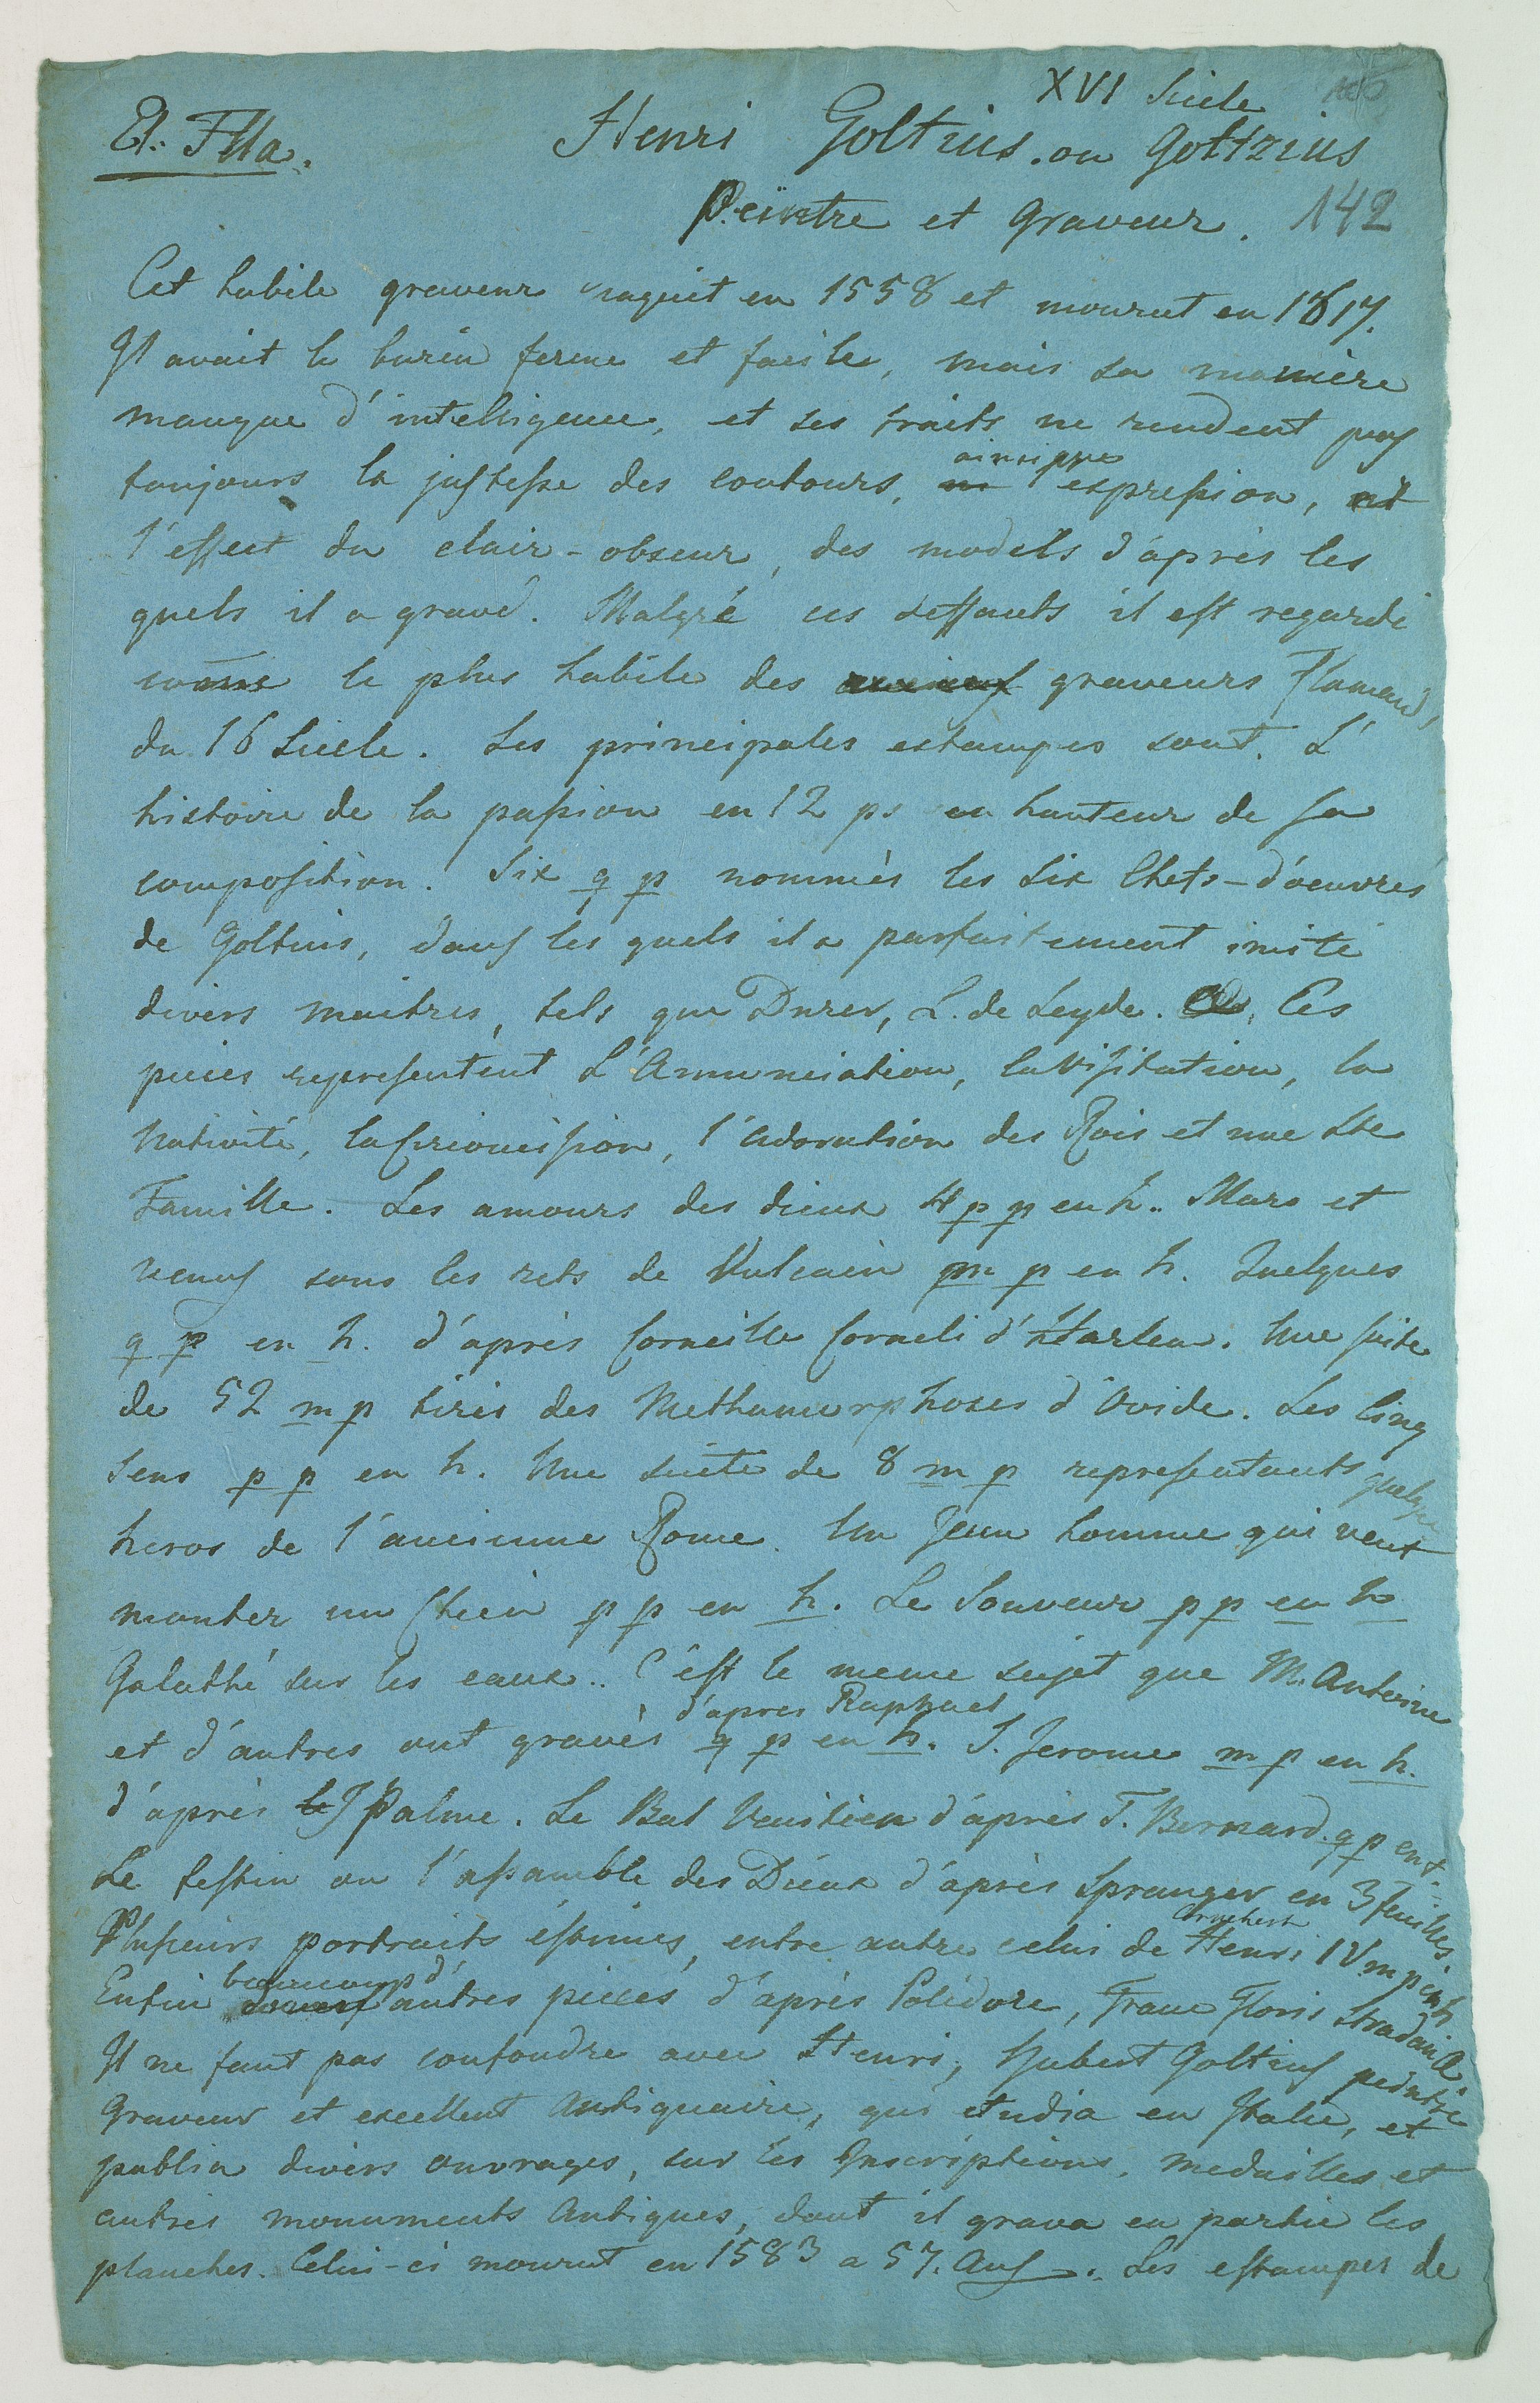 XVI Siècle
Et. Flla. Henri Goltzius. ou Goltzius
Peintre et Graveur. 142
Cet habile graveur naquit en 1558 et mourut en 1617.
Il avait le burin ferme et facile, mais sa manière
manque d'intelligence, et ses traits ne rendent pas
ainsi que
toujours la justesse des contours, l'expression, et
l'effect du clair-obscur, des models d'après les
quels il a gravé. Malgré ces deffauts il est regardé
come le plus habile des graveurs Flamand,
du 16 Siecle. Ses principales estampes sont. L'
histoire de la passion en 12 ps en hauteur de sa
composition. Six g p nommés les six Chefs-d'oeuvres
de Goltius, dans les quels il a parfaitement imité
divers maitres, tels que Durer, L. de Leyde. Ces
pieces representent L'Annunciation, la Visitation, la
Nativité, la Circoncision, l'adoration des Rois et une Ste
Famille. Les amours des dieux 4 p p en h.. Mars et
Venus sous les rets de Vulcain m p en h. Quelques
g p en h. d'après Corneille Corneli d'Harlem. Une suite
de 52 m p tirés des Methamorphoses d'Ovide. Les Cinq
sens p p en h. Une suite de 8 m p representants quelque
heros de l'ancienne Rome. Un Jeun homme qui veut
monter un Chien p p en h. Le Sauveur p p en h
Galathé sur les eaux.. C'est le meme sujet que M. Antoine
d'apres Raphael
et d'autres ont gravés g p en h. S. Jerome m p en h.
d'après J Palme. Le Bal Venitien d'après T. Bernard. g p en t.
Le festin ou l'assamble des Dieux d'après Spranger en 3 feuilles.
Cornehert
Plusieurs portraits estimés, entre autres celui de Henri IV m p en h
beaucoup d'
Enfin autres pieces d'après Polidore, Franc Floris Stradan &
Il ne faut pas confondre avec Henri, Hubert Goltius peintre
Graveur et excellent Antiquaire, qui etudia en Italie, et
publia divers ouvrages, sur les Inscriptions, medailles et
autres monuments Antiques, dont il grava en partie les
planches. Celui-ci mourut en 1583 a 57. Ans. Les estampes de